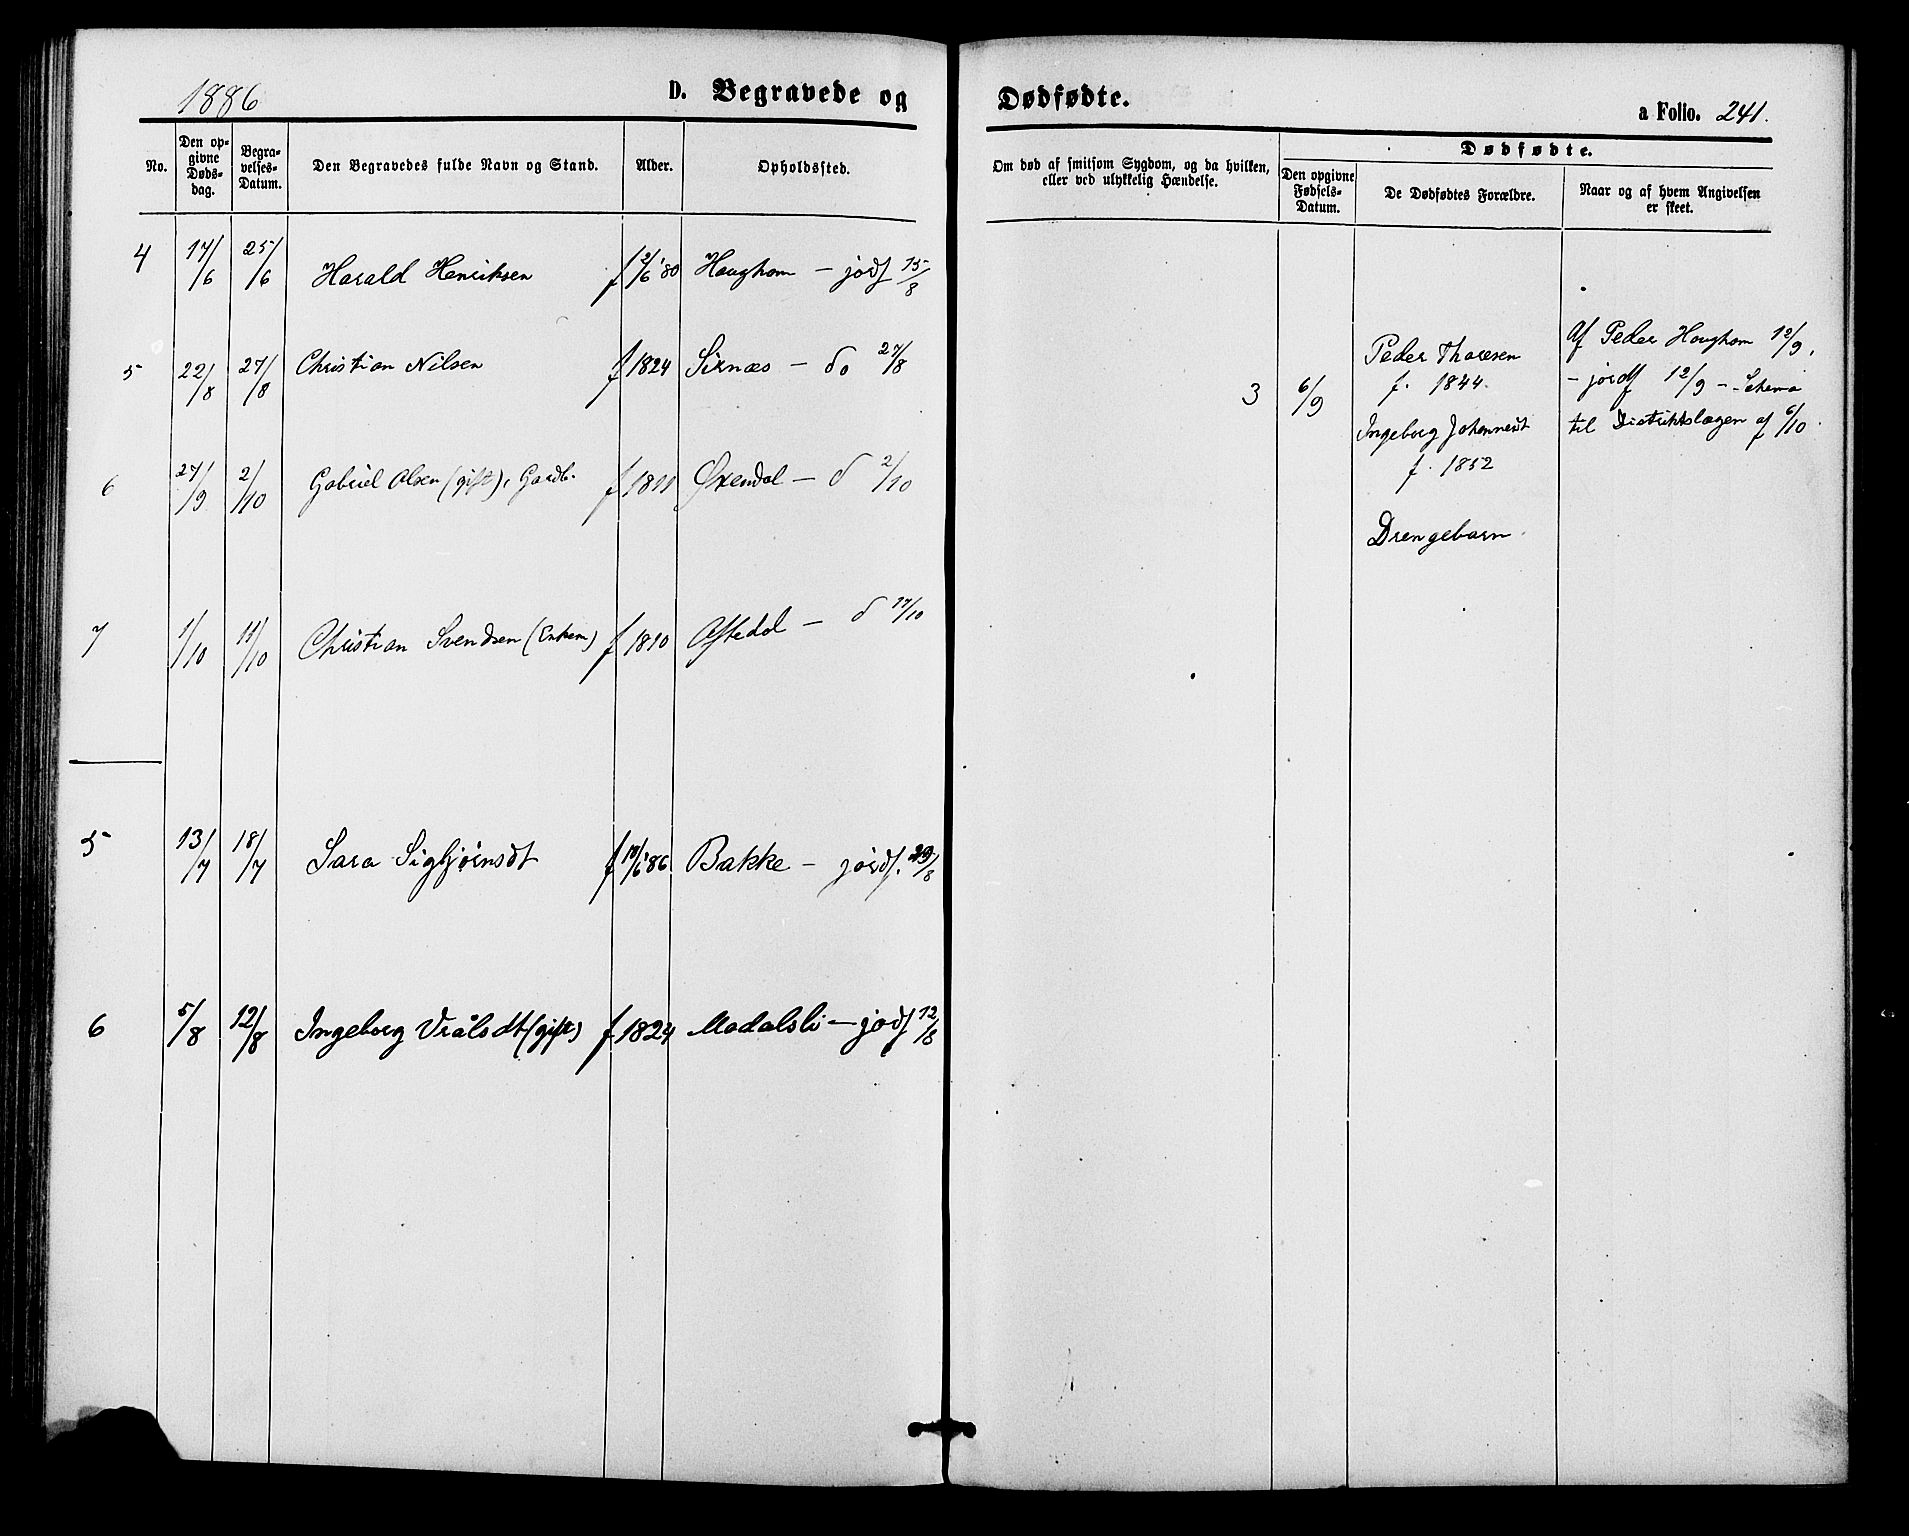 1886
D. Begravede og
Dødfødte.
a Folio. 241.
No.
Den op-
givne
Døds-
dag.
Begra-
velses-
Datum.
Den Begravedes fulde Navn og Stand.
Alder.
Opholdssted.
Om død af smitsom Sygdom, og da hvilken,
eller ved ulykkelig Hændelse.
Dødfødte.
Den opgivne
Fødsels-
Datum.
De Dødfødtes Forældre.
Naar og af hvem Angivelsen
er skeet.
4 17/6 25/6 Harald Henriksen f 2/6 '80 Haughom – jordf 15/8
5 22/8 27/8 Christian Nilsen f 1824 Sirnæs – do 27/8
6 27/9 2/10 Gabriel Olsen (gift), Gardb. f 1811 Øxendal – d 2/10
7 1/10 11/10 Christian Svendsen (Enkem) f 1810 Aftedal – d 17/10
5 13/7 18/7 Sara Sigbjørnsdt f /6 86 Bakke – jordf. /8
6 5/8 12/8 Ingeborg Vrålsdt (gift) f 1824 Modalsli – jordf 12/8
3 6/9
Peder Thoresen
f. 1844.
Ingeborg Johannesdt
f. 1852
Drengebarn.
Af Peder Haughom 12/9,
– jordf 12/9 – Schema
til Distriktslægen af 6/10.